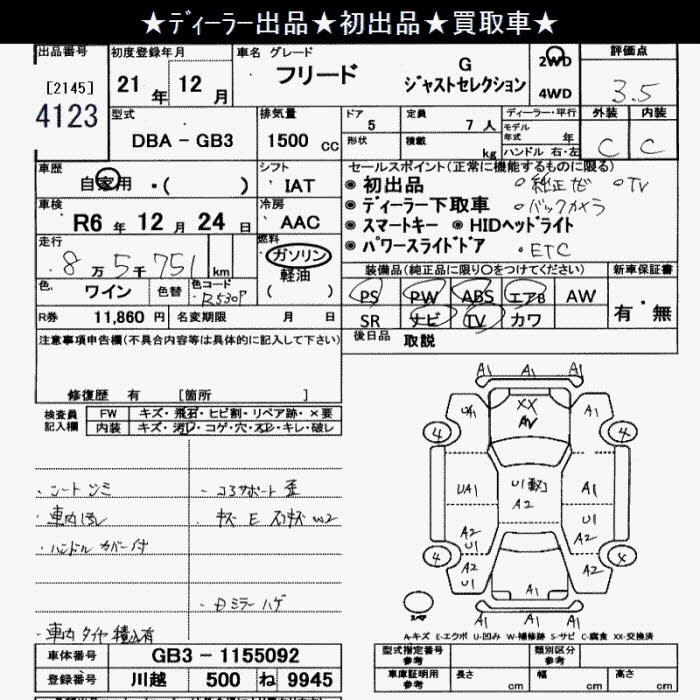 ★ディーラー出品★初出品★買取車★
出品番号
[2145]
4123
初度登録年月
21 年 12 月
車名 グレード
フリード
G
ジャストセレクション
2WD
4WD
評価点
3.5
外装 内装
C C
型式
DBA - GB3
排気量
1500 cc
ドア
5
形状
定員
7 人
積載
kg
ディーラー・平行
モデル年式 年
ハンドル 右・左
車歴
自家用 ・( )
シフト
IAT
車検
R6 年 12 月 24 日
冷房
AAC
走行
8 万 5 千 751 km
燃料
ガソリン
軽油
( )
色
ワイン
色替
色コード
R530P
R券 11,860 円
名変期限 月 日
セールスポイント(正常に機能するものに限る)
◉ 初出品 ○純正ナビ ○TV
◉ ディーラー下取車 ○バックカメラ
◉ スマートキー ◉ HIDヘッドライト
◉ パワースライドドア ・ETC
装備品(純正品に限り○をつけてください)
PS PW ABS エアB AW
SR ナビ TV カワ
新車保証書
有・無
後日品 取説
注意事項申告欄(不具合内容等は具体的に記入して下さい)
修復歴 有 [箇所 ]
検査員記入欄
FW キズ・飛石・ヒビ割・リペア跡・×要
内装 キズ・汚レ・コゲ・穴・スレ・キレ・破レ
・シートシミ
・車内汚レ
・ハンドル カバー付
・車内 タイヤ 積込有
・コアサポート 歪
・Dミラーハゲ
A1 A1 A1
UA1 XX A1
AV
4 4
UA1 U1 A2 A1
A2 U1 U1 A2
4 X
A2 U1 A1 A2
A1 A1 A1
A-キズ E-エクボ U-凹み W-補修跡 S-サビ C-腐食 XX-交換済
車体番号 GB3 - 1155092
登録番号 川越 500 ね 9945
型式指定番号 参考
類別区分 参考
車庫証明用 参考
長さ cm 幅 cm 高さ cm